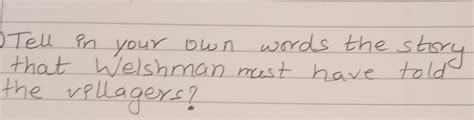 Tell in your own words the story
that Welshman must have told
the villagers?